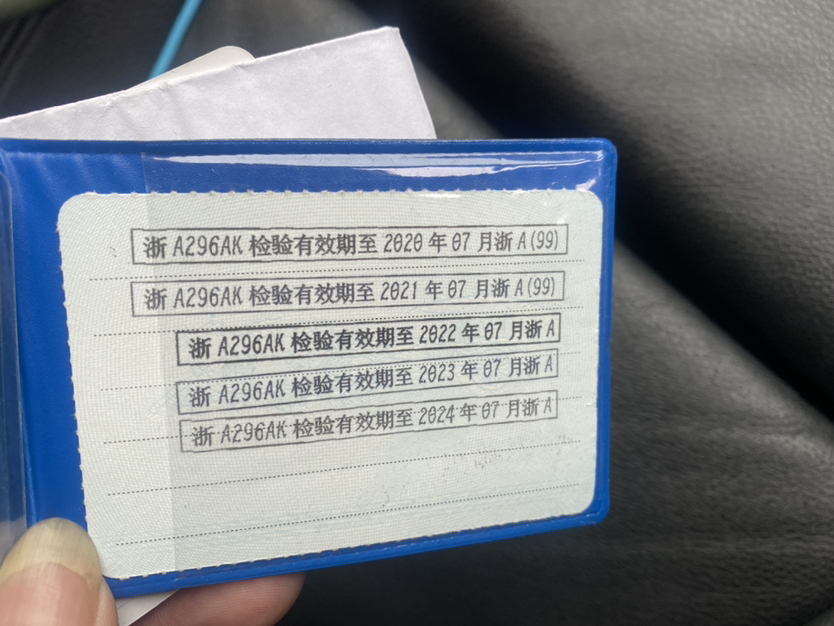 浙A296AK检验有效期至2020年07月浙A(99)
浙A296AK检验有效期至2021年07月浙A(99)
浙A296AK检验有效期至2022年07月浙A
浙A296AK检验有效期至2023年07月浙A
浙A296AK检验有效期至2024年07月浙A